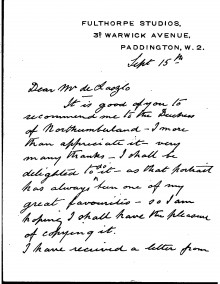 FULTHORPE STUDIOS,
3A WARWICK AVENUE,
PADDINGTON, W. 2.
Sept 15th
Dear Mr de Laszlo
It is good of you to
recommend me to the Duchess
of Northumberland - I more
than appreciate it - very
many thanks - I shall be
delighted to do it - as that portrait
has always been one of my
great favourites - so I am
hoping I shall have the pleasure
of copying it.
I have received a letter from